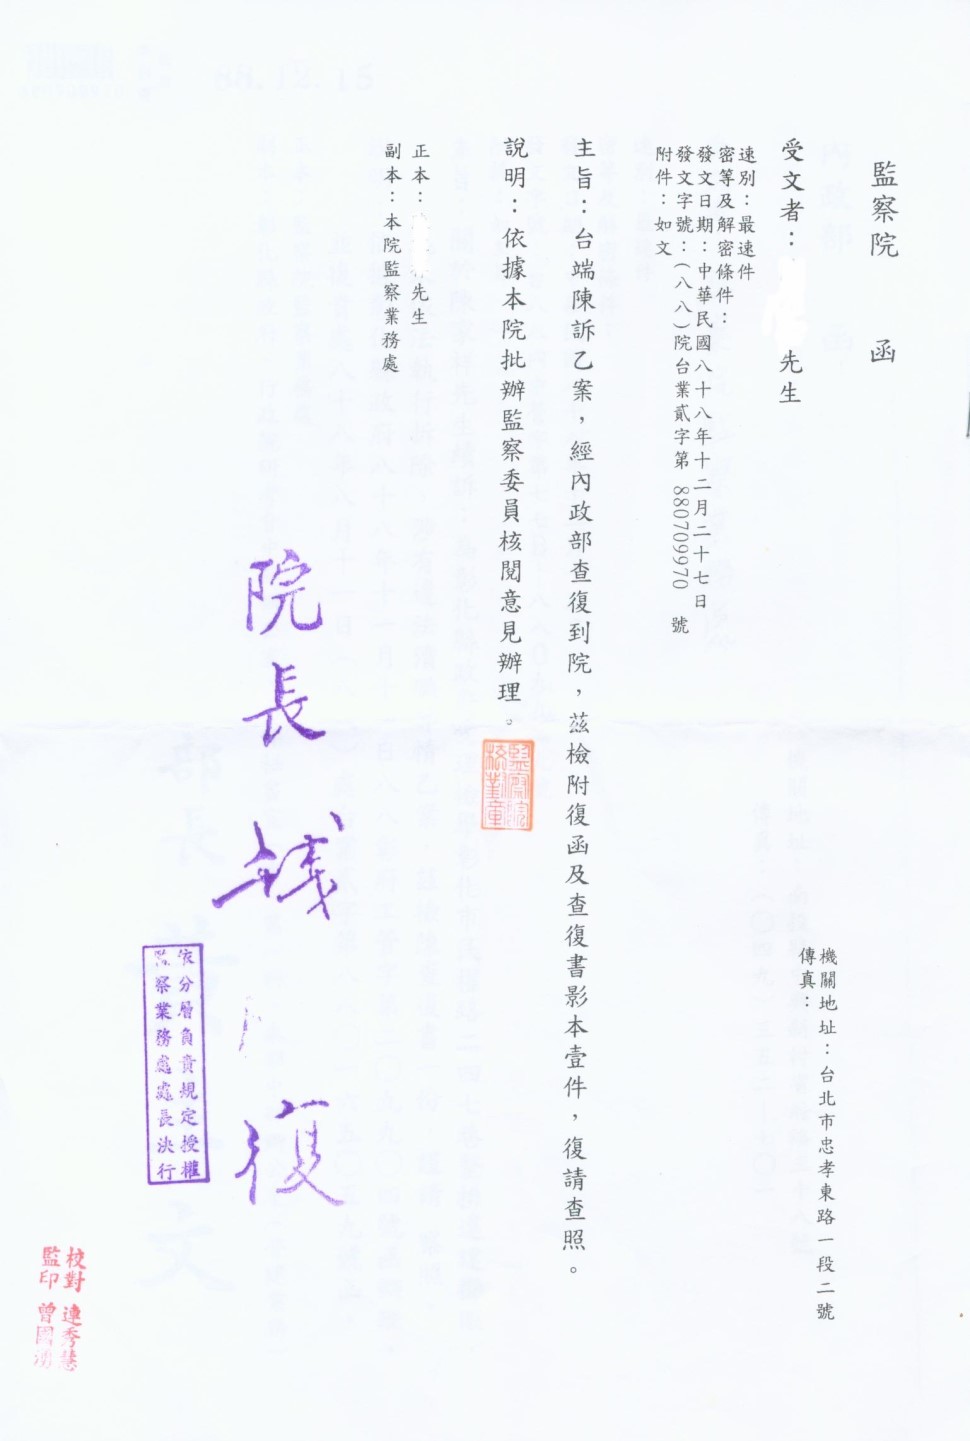 監察院 函
機關地址：台北市忠孝東路一段二號
傳真：
受文者： 先生
速別：最速件
密等及解密條件：
發文日期：中華民國八十八年十二月二十七日
發文字號：(八八)院台業貳字第 880709970 號
附件：如文
主旨：台端陳訴乙案，經內政部查復到院，茲檢附復函及查復書影本壹件，復請查照。
說明：依據本院批辦監察委員核閱意見辦理。
監察院
校對章
正本： 先生
副本：本院監察業務處
院長 錢 復
依分層負責規定授權
監察業務處處長決行
校對 連秀慧
監印 曾